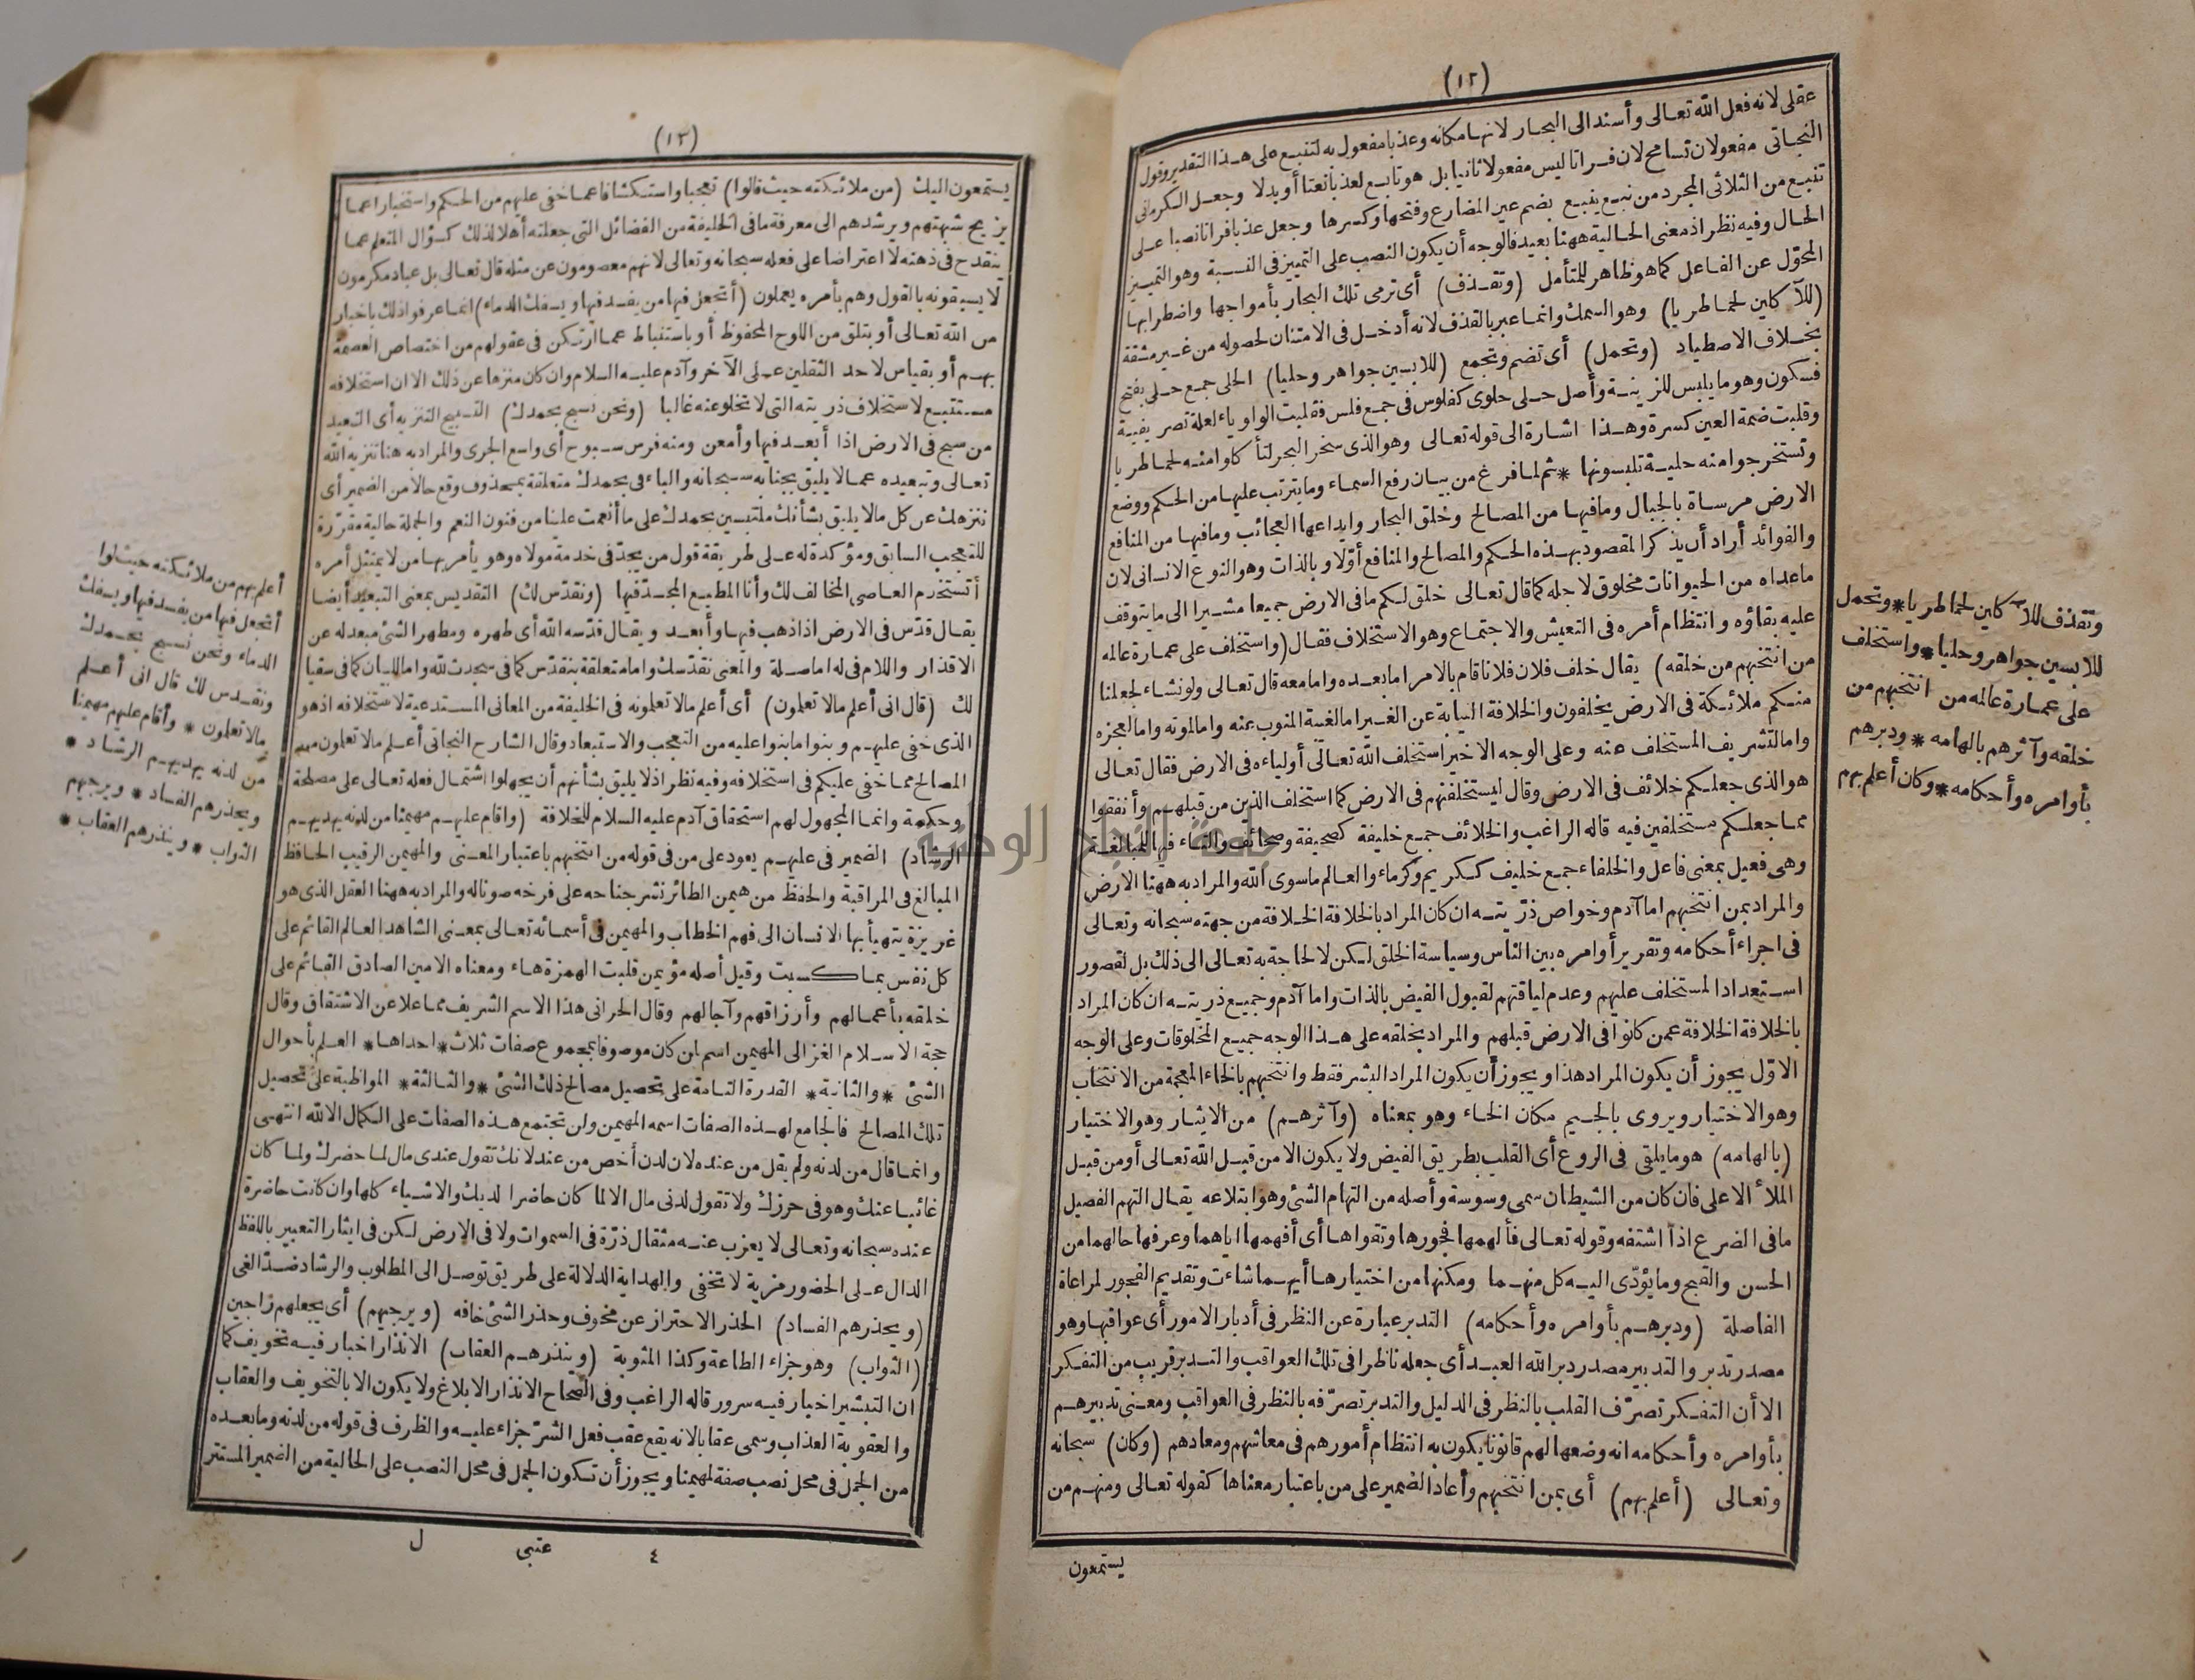 (١٢)
عقلى لانه فعل الله تعالى وأسند الى البحار لانها مكانه وعذبا مفعول به لتنبع على هذا التقدير وقول
النجاتى مفعولان تسامح لان فراتا ليس مفعولا ثانيا بل هو تابع لعذبا نعتا أو بدلا وجعل الكرمانى
تنبع من الثلاثى المجرد من نبع ينبع بضم عين المضارع وفتحها وكسرها وجعل عذبا فراتا نصبا على
الحال وفيه نظر اذ معنى الحالية ههنا بعيد فالوجه أن يكون النصب على التمييز فى النسبة وهو التمييز
المحوّل عن الفاعل كما هو ظاهر للمتأمل (وتقذف) أى ترمى تلك البحار بأمواجها واضطرابها
(للآكلين لحما طريا) وهو السمك وانما عبر بالقذف لانه أدخل فى الامتنان لحصوله من غير مشقة
بخلاف الاصطياد (وتحمل) أى تضم وتجمع (للابسين جواهر وحليا) الحلى جمع حلى بفتح
فسكون وهو ما يلبس للزينة وأصل حلى حلوى كفلوس فى جمع فلس فقلبت الواو ياء لعلة تصريفية
وقلبت ضمة العين كسرة وهذا اشارة الى قوله تعالى وهو الذى سخر البحر لتأكلوا منه لحما طريا
وتستخرجوا منه حلية تلبسونها * ثم لما فرغ من بيان رفع السماء وما يترتب عليها من الحكم ووضع
الارض مرساة بالجبال وما فيها من المصالح وخلق البحار وايداعها العجائب وما فيها من المنافع
والفوائد أراد أن يذكر المقصود بهذه الحكم والمصالح والمنافع أوّلا وبالذات وهو النوع الانسانى لان
ما عداه من الحيوانات مخلوق لاجله كما قال تعالى خلق لكم ما فى الارض جميعا مشيرا الى ما يتوقف
عليه بقاؤه وانتظام أمره فى التعيش والاجتماع وهو الاستخلاف فقال (واستخلف على عمارة عالمه
من انتخبهم من خلقه) يقال خلف فلان فلانا قام بالامر اما بعده واما معه قال تعالى ولو نشاء لجعلنا
منكم ملائكة فى الارض يخلفون والخلافة النيابة عن الغير اما لغيبة المنوب عنه واما لموته واما لعجزه
واما لتشريف المستخلف عنه وعلى الوجه الاخير استخلف الله تعالى أولياءه فى الارض فقال تعالى
هو الذى جعلكم خلائف فى الارض وقال ليستخلفنهم فى الارض كما استخلف الذين من قبلهم وأنفقوا
مما جعلكم مستخلفين فيه قاله الراغب والخلائف جمع خليفة كصحيفة وصحائف والتاء فيها للمبالغة
وهى فعيل بمعنى فاعل والخلفاء جمع خليف ككريم وكرماء والعالم ماسوى الله والمراد به ههنا الارض
والمراد بمن انتخبهم اما آدم وخواص ذرّيته ان كان المراد بالخلافة الخلافة من جهته سبحانه وتعالى
فى اجراء أحكامه وتقرير أوامره بين الناس وسياسة الخلق لكن لا لحاجة به تعالى الى ذلك بل لقصور
استعداد المستخلف عليهم وعدم لياقتهم لقبول الفيض بالذات واما آدم وجميع ذريته ان كان المراد
بالخلافة الخلافة عمن كانوا فى الارض قبلهم والمراد بخلقه على هذا الوجه جميع المخلوقات وعلى الوجه
الاوّل يجوز أن يكون المراد هذا ويجوز أن يكون المراد البشر فقط وانتخبهم بالخاء المعجمة من الانتخاب
وهو الاختيار ويروى بالجيم مكان الخاء وهو بمعناه (وآثرهم) من الايثار وهو الاختيار
(بالهامه) هو ما يلقى فى الروع أى القلب بطريق الفيض ولا يكون الا من قبل الله تعالى أو من قبل
الملأ الاعلى فان كان من الشيطان سمى وسوسة وأصله من التهام الشئ وهو ابتلاعه يقال التهم الفصيل
ما فى الضرع اذا اشتفه وقوله تعالى فألهمها فجورها وتقواها أى أفهمها اياهما وعرفها حالهما من
الحسن والقبح وما يؤدّى اليه كل منهما ومكنها من اختيارها أيهما شاءت وتقديم الفجور لمراعاة
الفاصلة (ودبرهم بأوامره وأحكامه) التدبر عبارة عن النظر فى أدبار الامور أى عواقبها وهو
مصدر تدبر والتدبير مصدر دبر الله العبد أى جعله ناظرا فى تلك العواقب والتدبر قريب من التفكر
الا أن التفكر تصرّف القلب بالنظر فى الدليل والتدبر تصرّفه بالنظر فى العواقب ومعنى تدبيرهم
بأوامره وأحكامه انه وضعها لهم قانونا يكون به انتظام أمورهم فى معاشهم ومعادهم (وكان) سبحانه
وتعالى (أعلم بهم) أى بمن انتخبهم وأعاد الضمير على من باعتبار معناها كقوله تعالى ومنهم من
يستمعون
وتقذف للآكلين لحما طريا * وتحمل
للابسين جواهر وحليا * واستخلف
على عمارة عالمه من انتخبهم من
خلقه وآثرهم بالهامه * ودبرهم
بأوامره وأحكامه * وكان أعلم بهم
(١٣)
يستمعون اليك (من ملائكته حيث قالوا) تعجبا واستكشافا عما خفى عليهم من الحكم واستخبارا عما
يزيح شبهتهم ويرشدهم الى معرفة ما فى الخليفة من الفضائل التى جعلته أهلا لذلك كسؤال المتعلم عما
ينقدح فى ذهنه لا اعتراضا على فعله سبحانه وتعالى لانهم معصومون عن مثله قال تعالى بل عباد مكرمون
لا يسبقونه بالقول وهم بأمره يعملون (أتجعل فيها من يفسد فيها ويسفك الدماء) انما عرفوا ذلك باخبار
من الله تعالى أو بتلق من اللوح المحفوظ أو باستنباط عما ارتكن فى عقولهم من اختصاص العصمة
بهم أو بقياس لاحد الثقلين على الآخر وآدم عليه السلام وان كان منزها عن ذلك الا ان استخلافه
مستتبع لاستخلاف ذريته التى لا تخلو عنه غالبا (ونحن نسبح بحمدك) التسبيح التنزيه أى التبعيد
من سبح فى الارض اذا أبعد فيها وأمعن ومنه فرس سبوح أى واسع الجرى والمراد به هنا تنزيه الله
تعالى وتبعيده عما لا يليق بجنابه سبحانه والباء فى بحمدك متعلقة بمحذوف وقع حالا من الضمير أى
ننزهك عن كل مالا يليق بشأنك ملتبسين بحمدك على ما أنعمت علينا من فنون النعم والجملة حالية مقرّرة
للتعجب السابق ومؤكدة له على طريقة قول من يجدّ فى خدمة مولاه وهو يأمر بها من لا يمتثل أمره
أتستخدم العاصى المخالف لك وأنا المطيع المجدّ فيها (ونقدّس لك) التقديس بمعنى التبعيد أيضا
يقال قدّس فى الارض اذا ذهب فيها وأبعد ويقال قدّسه الله أى طهره ومطهر الشئ مبعد له عن
الاقذار واللام فى له اما صلة والمعنى نقدّسك واما متعلقة بنقدّس كما فى سجدت لله واما للبيان كما فى سقيا
لك (قال انى أعلم مالا تعلمون) أى أعلم مالا تعلمونه فى الخليفة من المعانى المستدعية لاستخلافه اذ هو
الذى خفى عليهم وبنوا ما بنوا عليه من التعجب والاستبعاد وقال الشارح النجاتى أعلم مالا تعلمون من
المصالح مما خفى عليكم فى استخلافه وفيه نظر اذ لا يليق بشأنهم أن يجهلوا اشتمال فعله تعالى على مصلحة
وحكمة وانما المجهول لهم استحقاق آدم عليه السلام للخلافة (وأقام عليهم مهيمنا من لدنه يهديهم
الرشاد) الضمير فى عليهم يعود على من فى قوله من انتخبهم باعتبار المعنى والمهيمن الرقيب الحافظ
المبالغ فى المراقبة والحفظ من هيمن الطائر نشر جناحه على فرخه صونا له والمراد به ههنا العقل الذى هو
غريزة يتهيأ بها الانسان الى فهم الخطاب والمهيمن فى أسمائه تعالى بمعنى الشاهد العالم القائم على
كل نفس بما كسبت وقيل أصله مؤيمن قلبت الهمزة هاء ومعناه الامين الصادق القائم على
خلقه بأعمالهم وأرزاقهم وآجالهم وقال الحرانى هذا الاسم الشريف مما علا عن الاشتقاق وقال
حجة الاسلام الغزالى المهيمن اسم لمن كان موصوفا بمجموع صفات ثلاث * احداها * العلم بأحوال
الشئ * والثانية * القدرة التامة على تحصيل مصالح ذلك الشئ * والثالثة * المواظبة على تحصيل
تلك المصالح فالجامع لهذه الصفات اسمه المهيمن ولن تجتمع هذه الصفات على الكمال الا لله انتهى
وانما قال من لدنه ولم يقل من عنده لان لدن أخص من عند لانك تقول عندى مال لما حضرك ولما كان
غائبا عنك وهو فى حرزك ولا تقول لدنى مال الا لما كان حاضرا لديك والاشياء كلها وان كانت حاضرة
عنده سبحانه وتعالى لا يعزب عنه مثقال ذرّة فى السموات ولا فى الارض لكن فى ايثار التعبير باللفظ
الدال على الحضور مزية لا تخفى والهداية الدلالة على طريق توصل الى المطلوب والرشاد ضدّ الغى
(ويحذرهم الفساد) الحذر الاحتراز عن مخوف وحذر الشئ خافه (ويرجيهم) أى يجعلهم راجين
(الثواب) وهو جزاء الطاعة وكذا المثوبة (وينذرهم العقاب) الانذار اخبار فيه تخويف كما
ان التبشير اخبار فيه سرور قاله الراغب وفى الصحاح الانذار الابلاغ ولا يكون الا بالتخويف والعقاب
والعقوبة العذاب وسمى عقابا لانه يقع عقب فعل الشرّ جزاء عليه والظرف فى قوله من لدنه وما بعده
من الجمل فى محل نصب صفة لمهيمنا ويجوز أن تكون الجمل فى محل النصب على الحالية من الضمير المستتر
٤ عتبى ل
أعلم بهم من ملائكته حيث قالوا
أتجعل فيها من يفسد فيها ويسفك
الدماء ونحن نسبح بحمدك
ونقدس لك قال انى أعلم
مالا تعلمون * وأقام عليهم مهيمنا
من لدنه يهديهم الرشاد *
ويحذرهم الفساد * ويرجيهم
الثواب * وينذرهم العقاب *
جامعة النجاح الوطنية